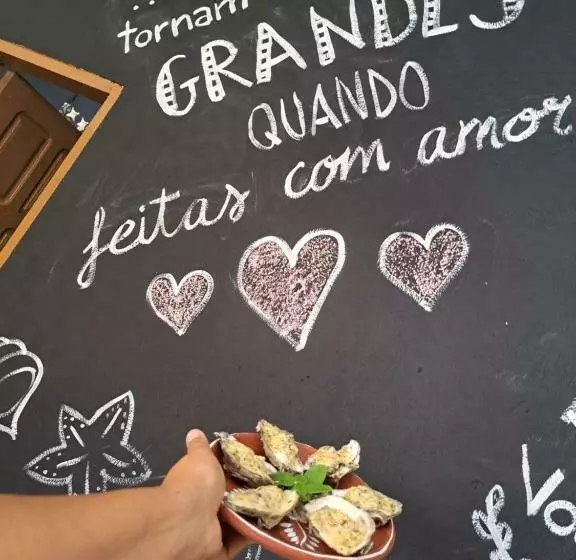 tornam
GRANDES
QUANDO
feitas com amor